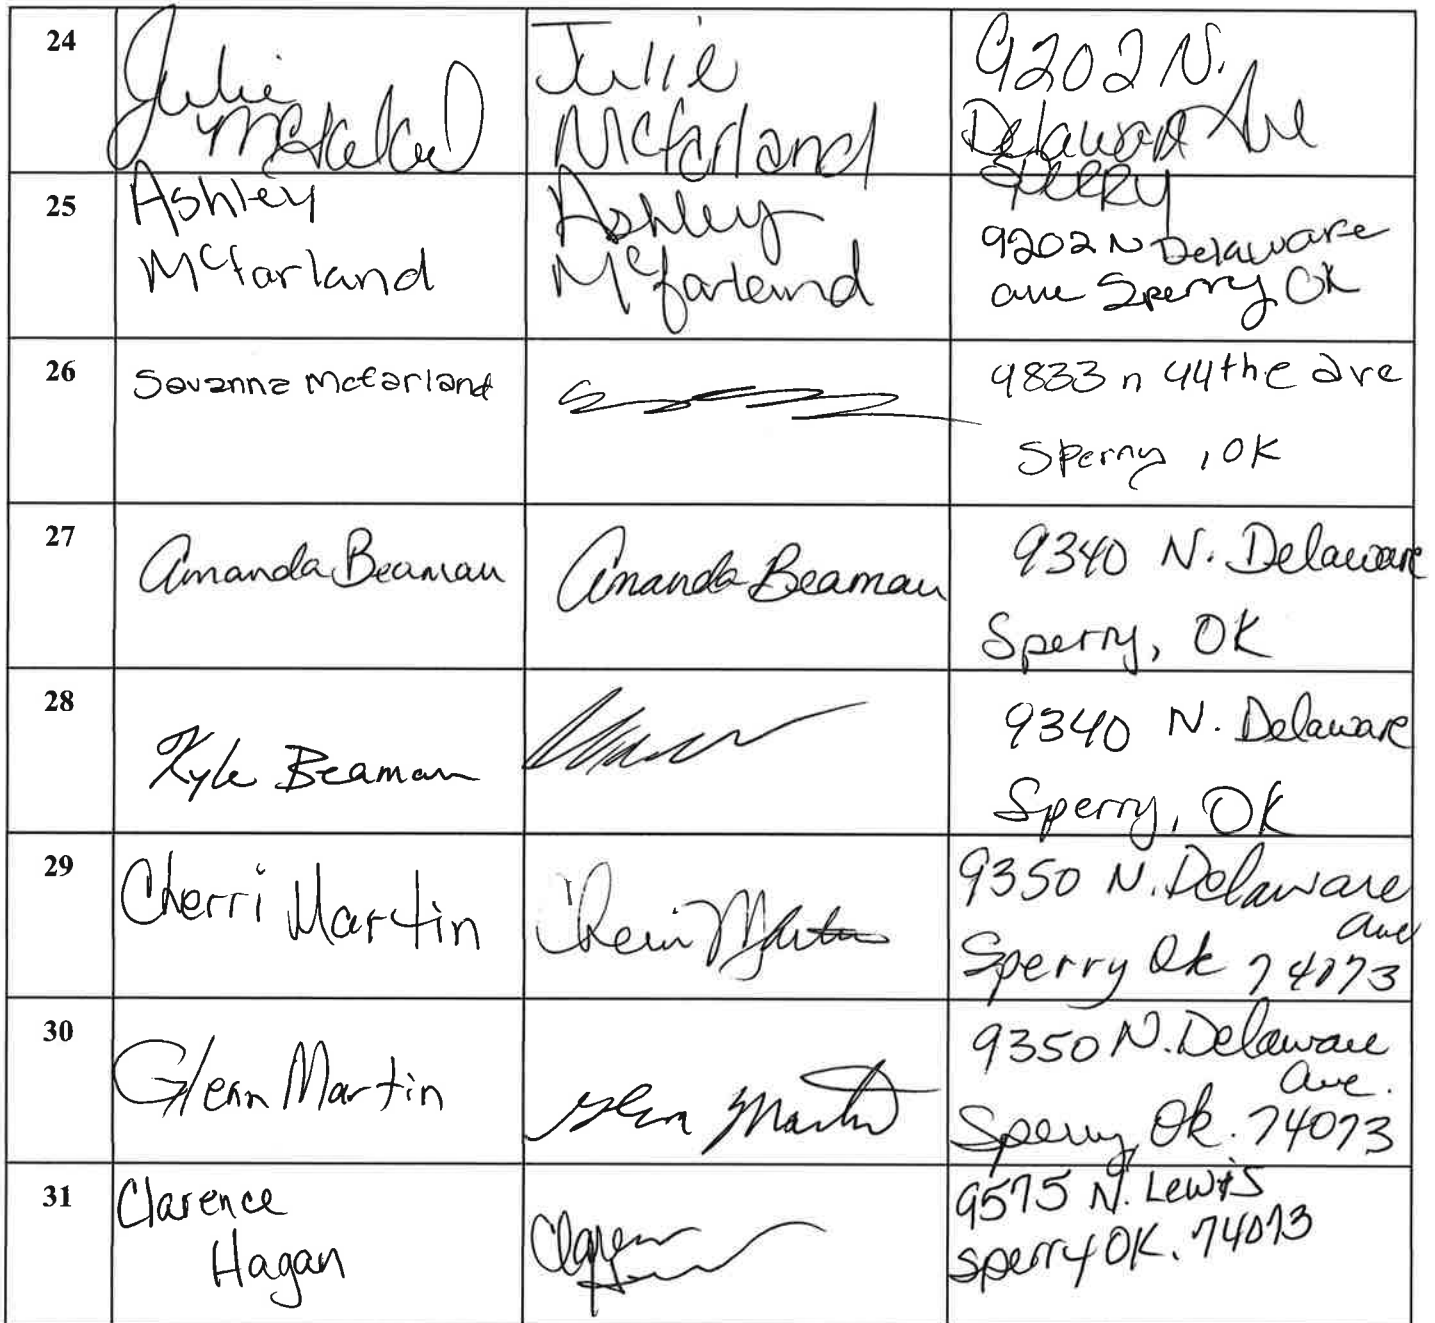 24
Julie
McFarland
Julie
McFarland
9202 N.
Delaware Ave
Sperry
25
Ashley
McFarland
Ashley
McFarland
9202 N Delaware
ave Sperry OK
26
Savanna Mcfarland
9833 n 44the ave
Sperry, OK
27
Amanda Beaman
Amanda Beaman
9340 N. Delaware
Sperry, OK
28
Kyle Beaman
9340 N. Delaware
Sperry, OK
29
Cherri Martin
Cherri Martin
9350 N. Delaware
Ave
Sperry Ok 74073
30
Glenn Martin
Glenn Martin
9350 N. Delaware
Ave.
Sperry, Ok. 74073
31
Clarence
Hagan
9575 N. Lewis
Sperry OK. 74073